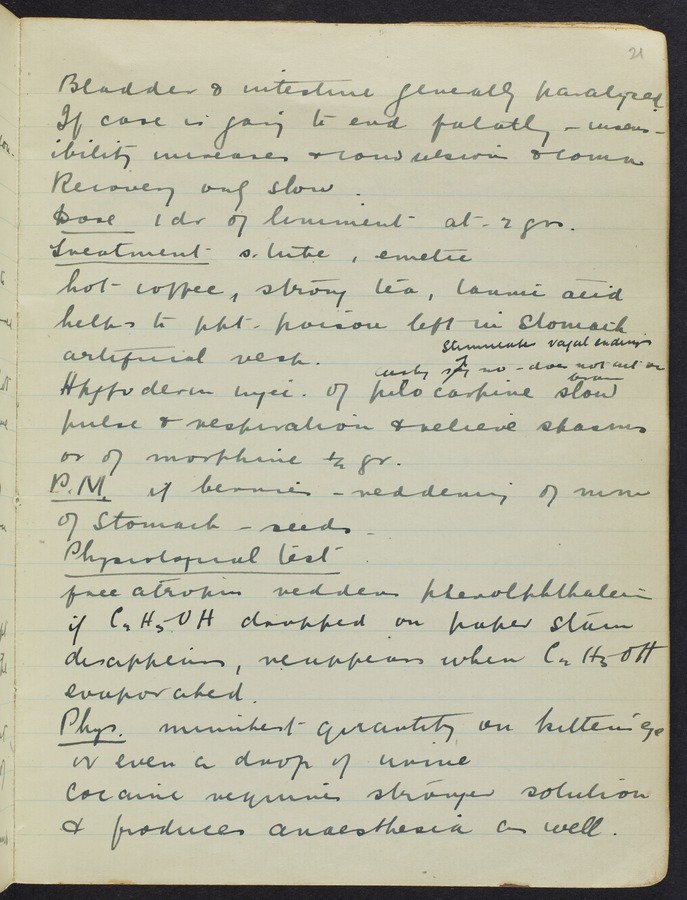 21
Bladder & intestine generally paralysed
If case is going to end fatally - insens-
ibility increases & convulsion & coma
Recovery only slow.
Dose 1 dr of liniment at - 2 grs.
Treatment s. tube, emetic
hot coffee, strong tea, tannic acid
helps to ppt. poison left in stomach
stimulates vagal endings
artificial resp.
only no - does not act on
brain
Hypoderm injec. of pilocarpine slow
pulse & respiration & relieve spasms
or of morphine ¼ gr.
P.M. if berries - reddening of mm
of stomach - seeds
Physiological test
free atropin reddens phenolphthalein
if C2H5OH dropped on paper stain
disappears, reappears when C2H5OH
evaporated.
Phys. minutest quantity on kitten's eye
or even a drop of urine
Cocaine requires stronger solution
& produces anaesthesia as well.